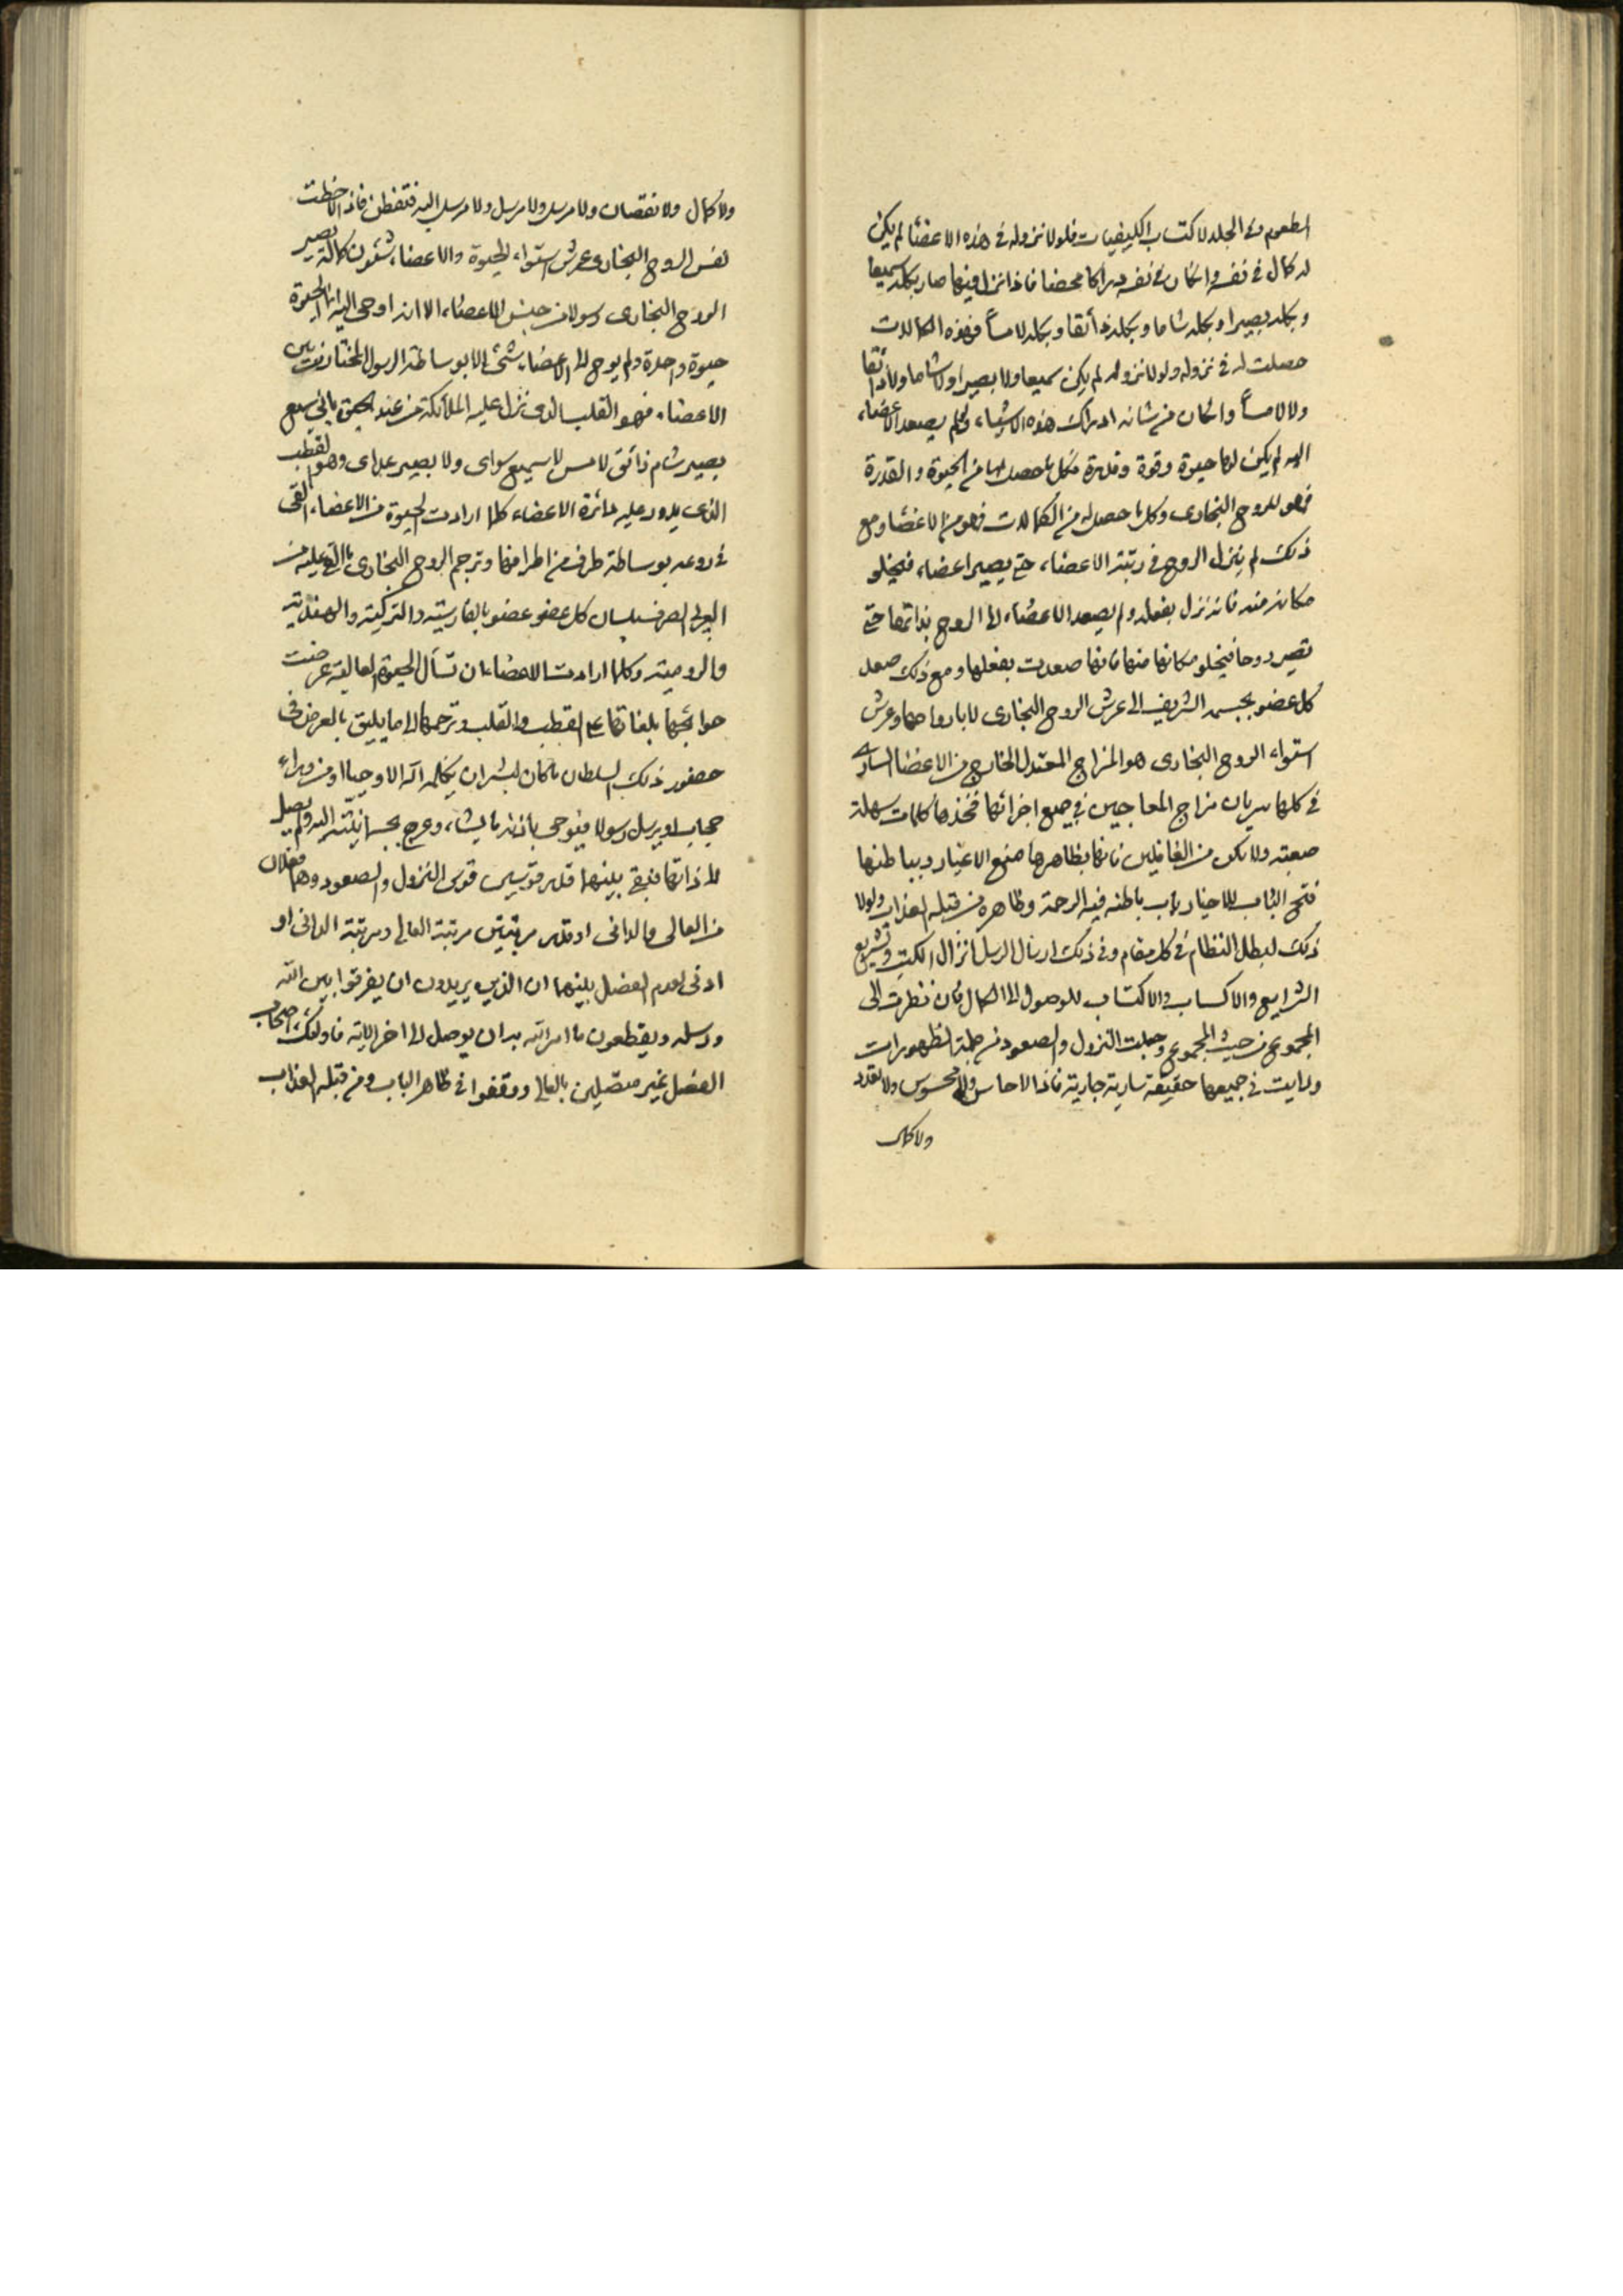 الطعوم وفى الجلد لاكتساب الكيفيات فلولا نزوله فى هذه الاعضاء لم يكن
له كمال فى نفسه وان كان فى نفسه دراكا محضا فاذا نزل فيها صار بكله سميعا
وبكله بصيرا وبكله شاما وبكله ذائقا وبكله لامساً فهذه الكمالات
حصلت له فى نزوله ولولا نزوله لم يكن سميعا ولا بصيرا ولا شاما ولا ذائقا
ولا لامساً وان كان من شانه ادراك هذه الاشياء ولو لم يصعد الاعضاء
اليه لم يكن لها حيوة وقوة وقدرة فكل ما حصل لها من الحيوة والقدرة
فهو للروح البخارى وكل ما حصل له من الكمالات فهو من الاعضاء ومع
ذلك لم ينزل الروح فى رتبة الاعضاء حتى يصير اعضاء فيخلو
مكانه منه فانه نزل بفعله ولم يصعد الاعضاء الى الروح بذاتها حتى
تصير روحا فيخلو مكانها منها فانها صعدت بفعلها ومع ذلك صعد
كل عضو بجسمه الشريف الى عرش الروح البخارى لا بارواحها وعرش
استواء الروح البخارى هو المزاج المعتدل الخارج من الاعضاء السارى
فى كلها سريان مزاج المعاجين فى جميع اجزائها فخذها كلمات سهلة
صعبة ولا تكن من الغافلين فانها بظاهرها منع الاغيار وبباطنها
فتح الباب للاخيار باب باطنه فيه الرحمة وظاهره من قبله العذاب ولولا
ذلك لبطل النظام فى كل مقام وفى ذلك ارسال الرسل انزال الكتب وتشريع
الشرايع والاكساب والاكتساب للوصول الى الكمال فان نظرت الى
المجموع من حيث المجموع وجعلت النزول والصعود من جملة الظهورات
ورايت فى جميعها حقيقة سارية جارية فاذا لا حاس ولا محسوس ولا تعدد
ولا كمال
ولا كمال ولا نقصان ولا مرسل ولا مرسل ولا مرسل اليه فتفطن فاذا لاحظت
نفس الروح البخارى عرش استواء الحيوة والاعضاء شئون كماله يصير
الروح البخارى رسولا من جنس الاعضاء الا انه اوحى اليه انما الحيوة
حيوة واحدة ولم يوح الى الاعضاء بشئ الا بوساطة الرسول المختار من بين
الاعضاء فهو القلب الذى نزل عليه الملائكة من عند الحق بانى سميع
بصير شام ذائق لامس لا سميع سواى ولا بصير عداى وهو القطب
الذى يدور عليه دائرة الاعضاء كلما ارادت الحيوة من الاعضاء القى
فى روعه بوساطة طرف من اطرافها وترجم الروح البخارى ما القى عليه من
العربى الصرف بلسان كل عضو عضو بالفارسية والتركية والهندية
والرومية وكلما ارادت الاعضاء ان تسأل الحيوة العالية عرضت
حوائجها بلغاتها على القطب والقلب وترجمها الى ما يليق بالعرض فى
حضور ذلك السلطان ما كان لبشر ان يكلمه الله الا وحيا او من وراء
حجاب او يرسل رسولا فيوحى باذنه ما يشاء وعرج بجسمانيته اليه ولم يصل
الى ذاتها فبقى بينهما قدر قوسين قوس النزول والصعود وهما فعلان
من العالى والدانى او قدر مرتبتين مرتبة العالى ومرتبة الدانى او
ادنى لعدم الفصل بينهما ان الذين يريدون ان يفرقوا بين الله
ورسله ويقطعون ما امر الله به ان يوصل الى اخر الاية فاولئك اصحاب
الفصل غير متصلين بالعالى ووقفوا فى ظاهر الباب ومن قبله العذاب